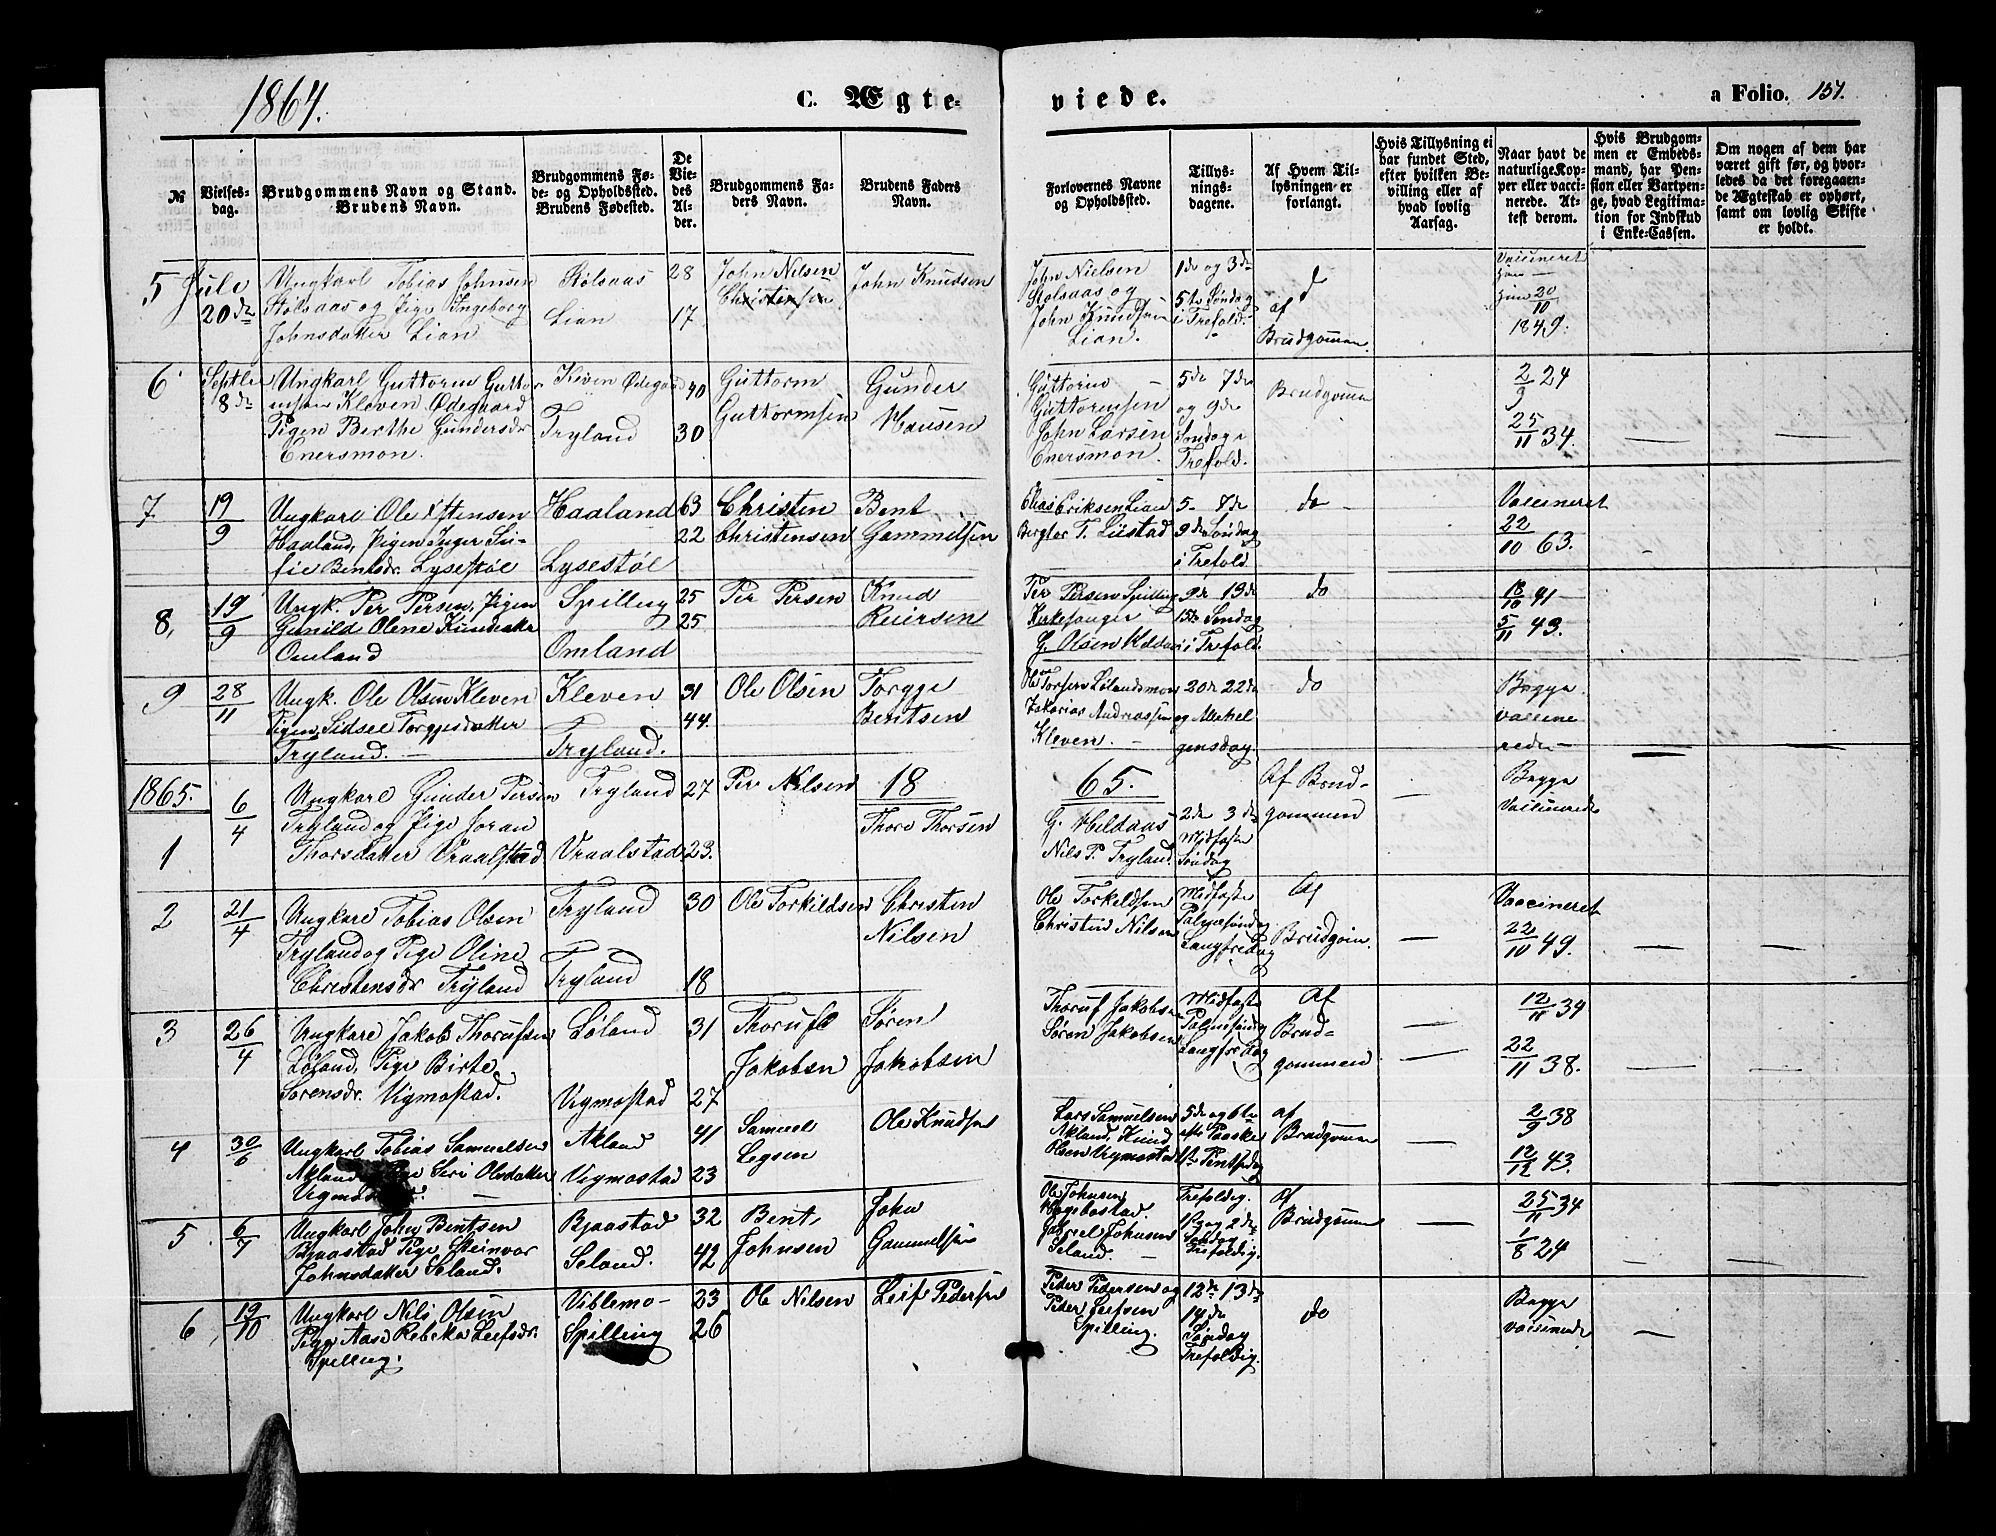 1864.
C. Ægte-
viede.
a Folio. 151.
№
Vielses-
dag.
Brudgommens Navn og Stand.
Brudens Navn.
Brudgommens Fø-
de- og Opholdssted.
Brudens Fødested.
De
Vie-
des
Al-
der.
Brudgommens Fa-
ders Navn.
Brudens Faders
Navn.
Forlovernes Navne
og Opholdssted.
Tillys-
nings-
dagene.
Af Hvem Til-
lysningen er
forlangt.
Hvis Tillysning ei
har fundet Sted,
efter hvilken Be-
villing eller af
hvad lovlig
Aarsag.
Naar havt de
naturlige Kop-
per eller vacci-
nerede. At-
test derom.
Hvis Brudgom-
men er Embeds-
mand, har Pen-
sion eller Vartpen-
ge, hvad Legitima-
tion for Indskud
i Enke-Cassen.
Om nogen af dem har
været gift før, og hvor-
ledes da det foregaaen-
de Ægteskab er ophørt,
samt om lovlig Skifte
er holdt.
5
Juli
20de
Ungkarl Tobias Johnsen
Stolsaas og Pige Ingeborg
Johnsdatter Lian
Stolsaas
Lian
28
17
John Nilsen
Christensen
John Knudsen
John Nielsen
Stolsaas og
John Knudsen
Lian.
1de og 3de
5te Søndag
i Trefold.
af
Brudgommen
Vaccineret
20
10
1849.
6
Septbr
8de
Ungkarl Guttorm Guttor
msen Kleven Ødegaard
Pigen Berthe Gundersdr
Enersmon.
Kleven Ødegaard
Tryland
40
30
Guttorm
Guttormsen
Gunder
Hansen
Guttorm
Guttormsen
John Larsen
Enersmon
5de 7de
og 9de
Søndag i
Trefold.
Brudgommen
2/9 24
25/11 34.
7.
19/9
Ungkarl Ole Christensen
Haaland, Pigen Inger So-
fie Bentsdr. Lysestøl
Haaland
Lysestøl
63
22
Christen
Christensen
Bent
Gammelsen
Elias Eriksen Lian
Bergtor T. Liistad
5- 7de
9de Søndag
i Trefold
do
Vaccineret
22/10 63.
8,
19/9
Ungk. Per Persen, Pigen
Gunild Olene Knudsdtr
Omland
Spilling
Omland
25
25
Per Persen
Knud
Reiersen
Per Persen Spilling
Kirkesanger
G. Olsen Heldaas
9de 13de
15de Søndag
i Trefold.
do
18/10 41
5/11 43.
9
28/11
Ungk. Ole Olsen Kleven
Pigen Sidsel Torgjesdatter
Tryland.
Kleven
Tryland.
31
44.
Ole Olsen
Torgje
Bentsen
Ole Torsen Lølandsmon
Zakarias Andreassen
Kleven.
20de 22de
og Allehel
gensdag
do
Begge
vaccine
rede
1865.
6/4
1
Ungkarl Gunder Persen
Tryland og Pige Joran
Thorsdatter Vraalstad
Tryland
Vraalstad
27
23.
Per Nilsen
18
Thore Thorsen
65.
G. Heldaas
Nils P. Tryland.
2de 3de
Midfaste
Søndag
Af Brud-
gommen
Begge
Vaccinerede
2
21/4
Ungkarl Tobias Olsen
Tryland og Pige Oline
Christensdr Tryland
Tryland
Tryland
30
18
Ole Torkildsen
Christen
Nilsen
Ole Torkeldsen
Christen Nilsen
Midfaste
Palmesøndag
Langfredag
Af
Brudgom.
Vaccineret
22/10 49.
3
26/4
Ungkarl Jakob Thorufsen
Løland, Pige Birte
Sørensdr. Vigmostad.
Løland
Vigmostad
31
27
Thoruf
Jakobsen
Søren
Jakobsen
Thoruf Jakobsen
Søren Jakobsen
Midfaste
Palmesøndag
Langfredag
Af
Brud-
gommen
12/11 34
22/11 38.
4
30/6
Ungkarl Tobias Samuelsen
Akland Pige Siri Olsdatter
Akland
Vigmostad
41
23
Samuel
Legsen
Ole Knudsen
Lars Samuelsen
Akland, Knud
Olsen Vigmostad
5de og 6te
efter Paaske
1te Pintsedag
af
Brudgommen
2/9 38
12/12 43.
5
6/7
Ungkarl John Bentsen
Bjaastad Pige Steinvor
Johnsdatter Seland.
Bjaastad
Seland.
32
42
Bent
Johnsen
John
Gammelsen
Ole Johnsen
Hægebostad
Gabriel Johnsen
Seland.
Trefoldig.
1ste og 2de
Søndag i
Trefoldig.
af
Brudgommen
25/11 34
1/8 24
6
19/10
Ungkarl Nils Olsen
Pige Aase Rebekka Leifsdr.
Spilling.
Viblemo-
Spilling
23
26
Ole Nilsen
Leif Pedersen
Peder Pedersen og
Peder Leifsen
Spilling.
12te 13de
14de
Søndag
Trefoldig.
do
Begge
vaccinerede